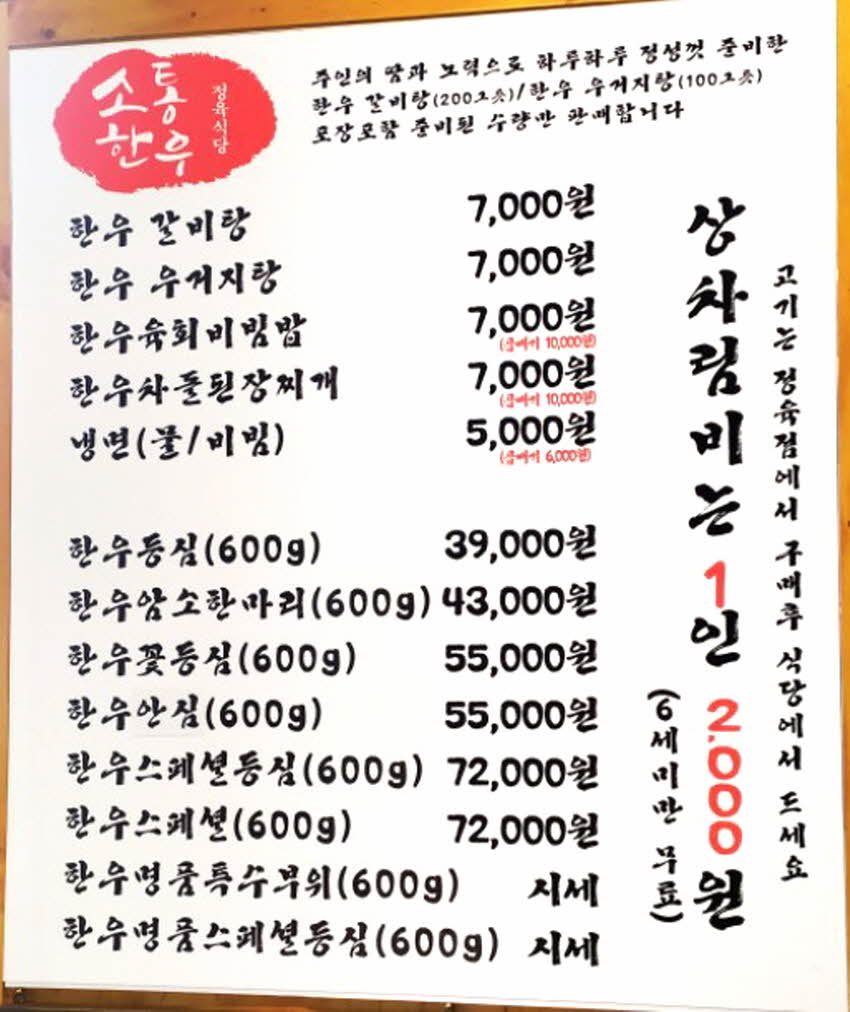 소통
한우
정육식당
주인의 땀과 노력으로 하루하루 정성껏 준비한
한우 갈비탕(200그릇)/한우 우거지탕(100그릇)
포장포함 준비된 수량만 판매합니다
한우 갈비탕 7,000원
한우 우거지탕 7,000원
한우육회비빔밥 7,000원
(곱빼기 10,000원)
한우차돌된장찌개 7,000원
(곱빼기 10,000원)
냉면(물/비빔) 5,000원
(곱빼기 6,000원)
한우등심(600g) 39,000원
한우암소한마리(600g) 43,000원
한우꽃등심(600g) 55,000원
한우안심(600g) 55,000원
한우스페셜등심(600g) 72,000원
한우스페셜(600g) 72,000원
한우명품특수부위(600g) 시세
한우명품스페셜등심(600g) 시세
상차림비는 1인 2,000원
(6세미만 무료)
고기는 정육점에서 구매후 식당에서 드세요